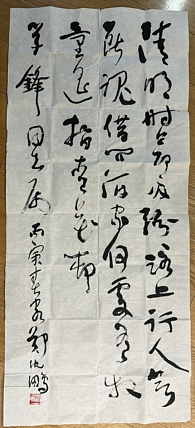 清明时节雨纷纷路上行人欲
断魂借问酒家何处有牧
童遥指杏花村
学锋同志属 丙寅春 郑